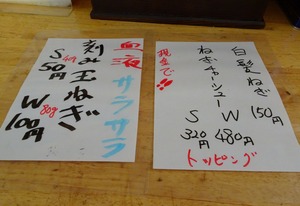 白髪ねぎ 150円
ねぎチャーシュー
S 320円
W 480円
トッピング
血液サラサラ
刻み玉ねぎ
S 40g 50円
W 80g 100円